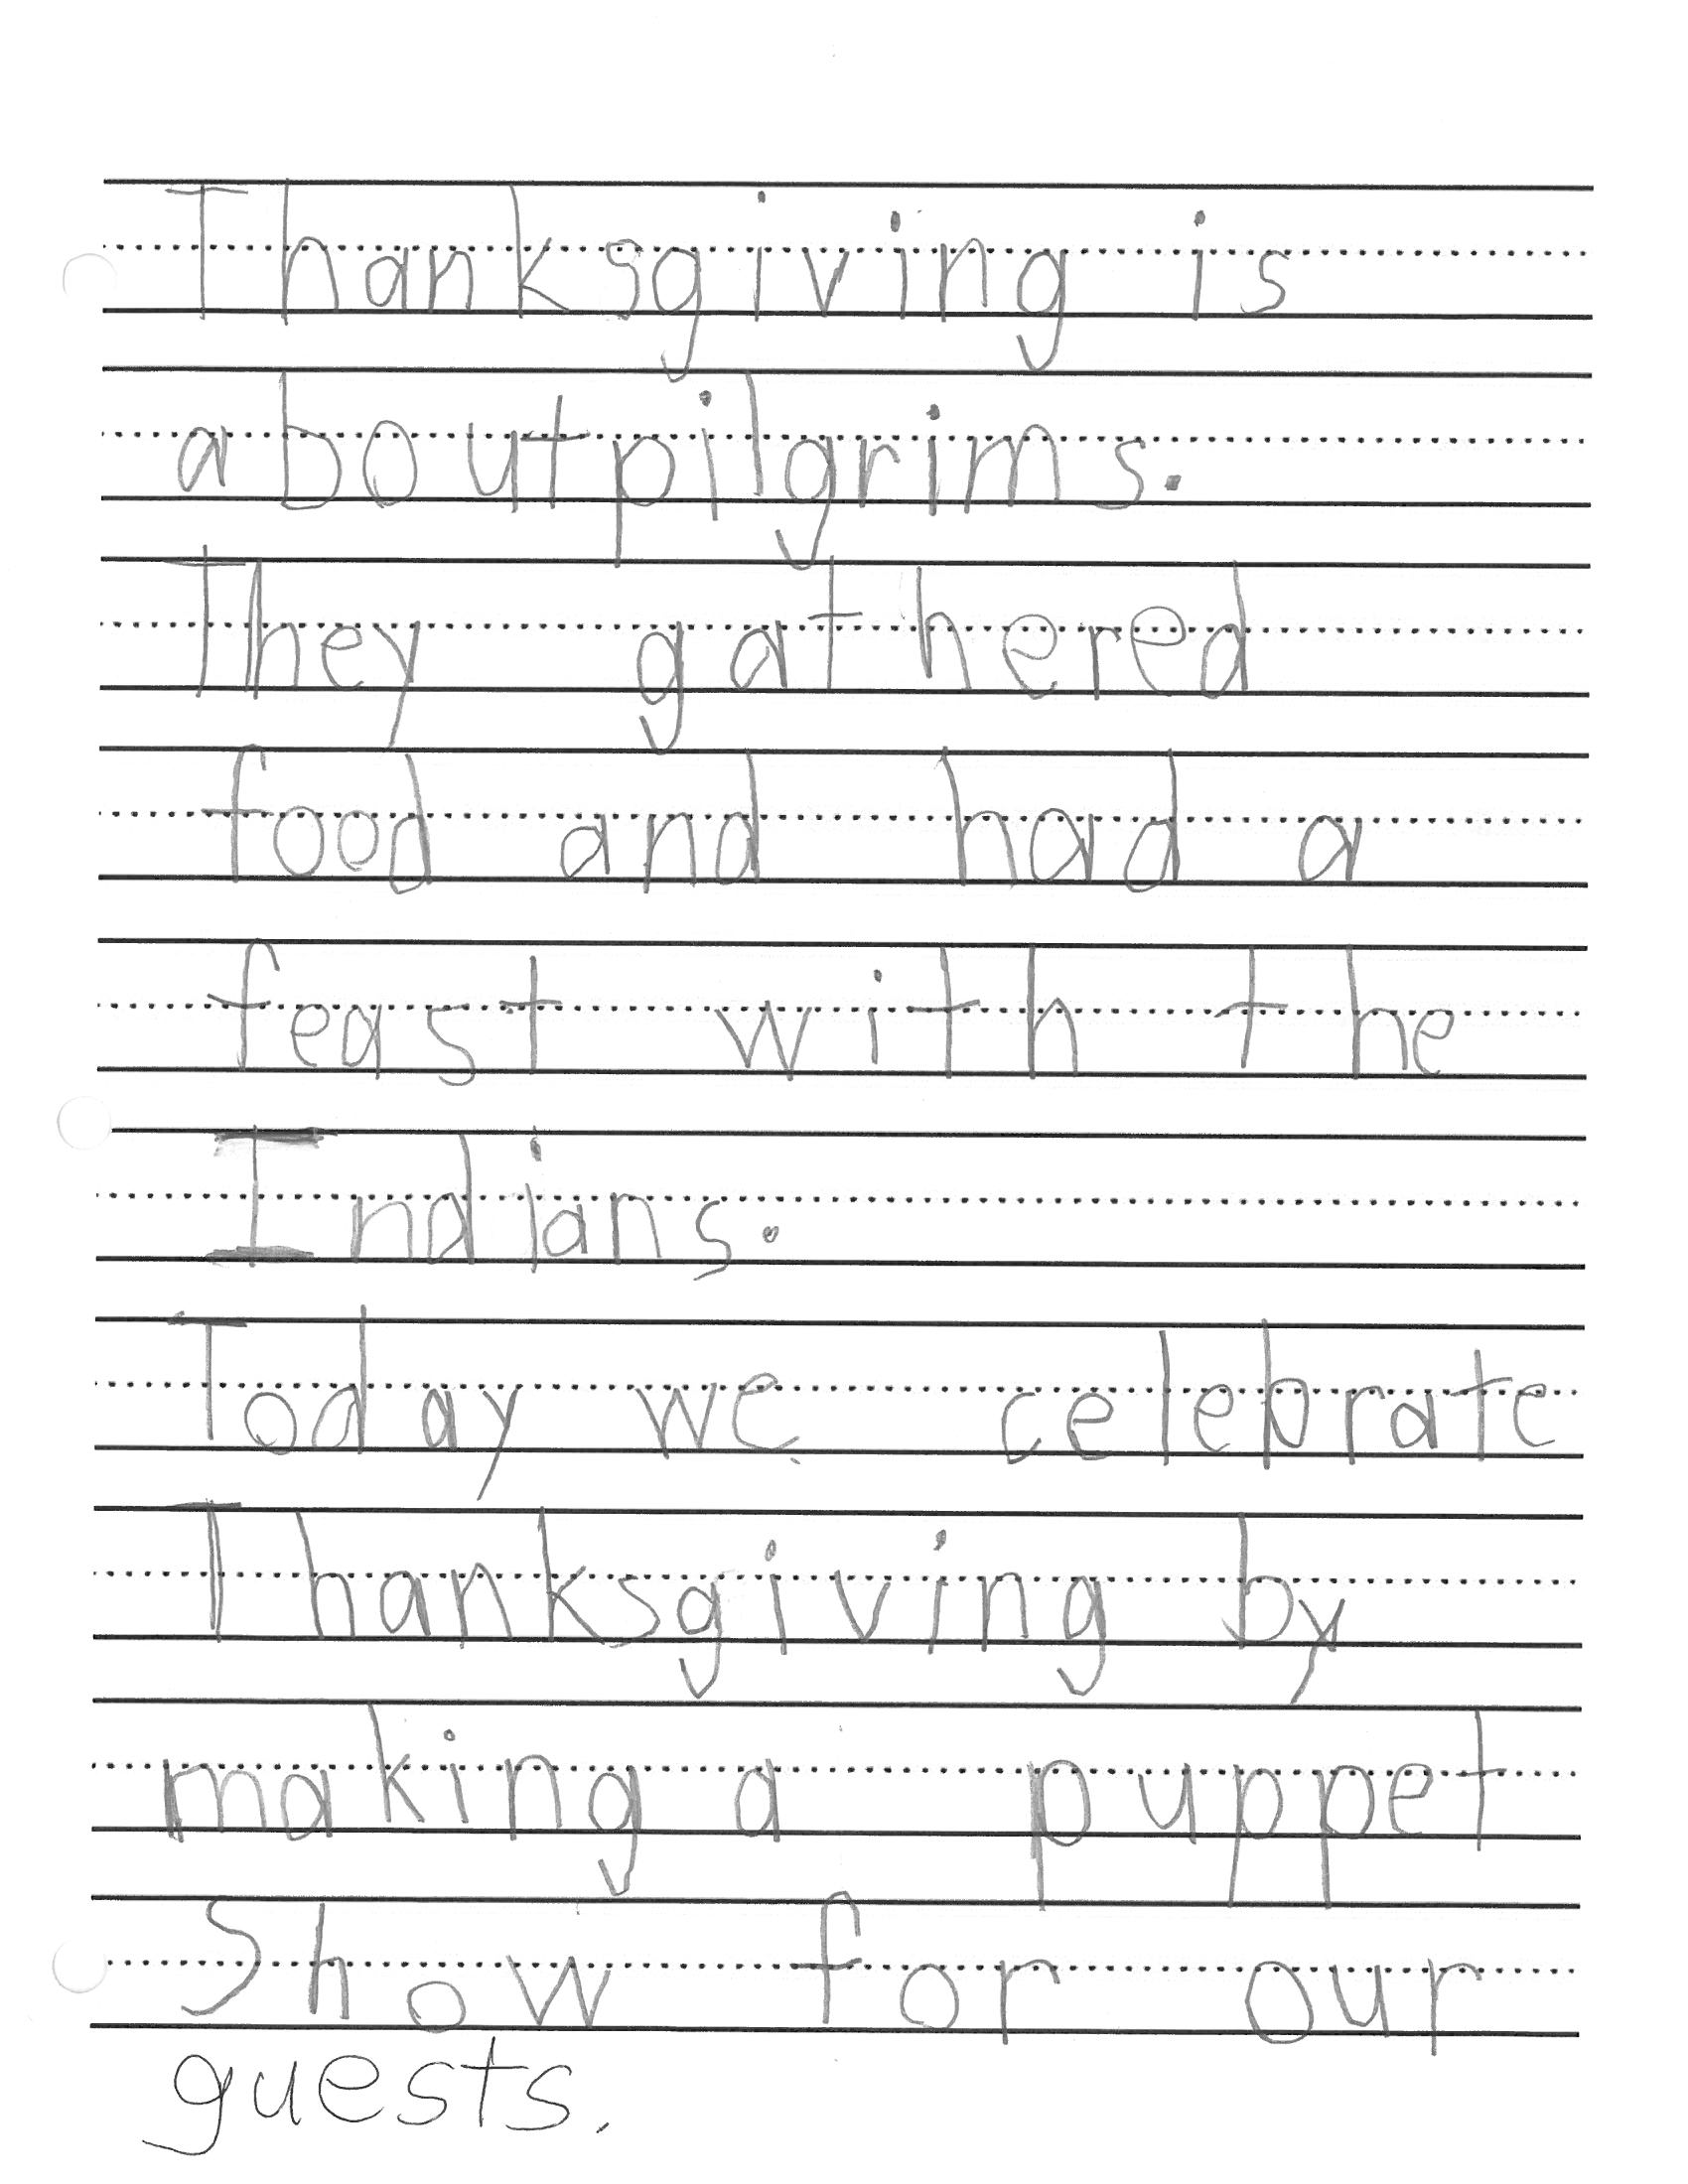 Thanksgiving is
about pilgrims.
They gathered
food and had a
feast with the
Indians.
Today we celebrate
Thanksgiving by
making a puppet
Show for our
guests.